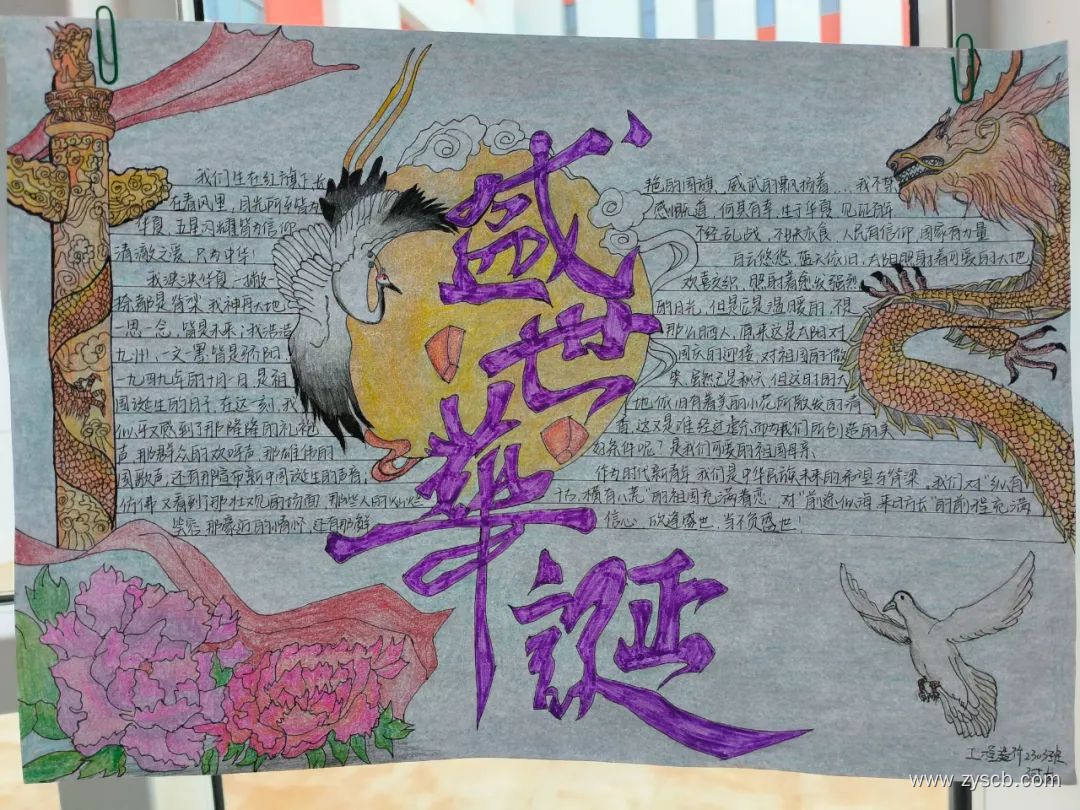 盛世華诞
我们生在红旗下长
在春风里，目光所至皆为
华夏，五星闪耀皆为信仰
清澈之爱，只为中华
我泱泱华夏，一撇一
捺都是脊梁，我神舟大地
一思一念，皆是未来；我浩浩
九州，一文一墨，皆是骄阳
一九四九年的十月一日，是祖
国诞生的日子，在这一刻，我
似乎又感到了那隆隆的礼炮
声，那群众的欢呼声，那雄伟的
国歌声，还有那宣布新中国诞生的声音，
仿佛又看到了那壮观的场面，那些人的
笑容，那豪迈的情怀，还有那鲜
艳的国旗，威武的飘扬着...我不禁
感慨道，何其有幸，生于华夏，见证
不经乱战，不缺衣食，人民有信仰，国家有力量
白云悠悠，蓝天依旧，太阳照射着可爱的大地
欢喜交织，照射着愈发强烈
的日光，但是它是温暖的，不是
那么的人，原来这是太阳对
国庆的迎接，对祖国的微
笑，虽然已是秋天，但这时的大
地依旧有着美丽的小花所散发的清
香，这又是谁经过虑而为我们所创造的美
好条件呢？是我们可爱的祖国母亲
作为时代新青年，我们是中华民族未来的希望与脊梁，我们对"纵有
千古，横有八荒"的祖国充满眷恋，对"前途似海，来日方长"的前程充满
信心，欣逢盛世，当不负盛世！
工程造价
www.zyscb.com